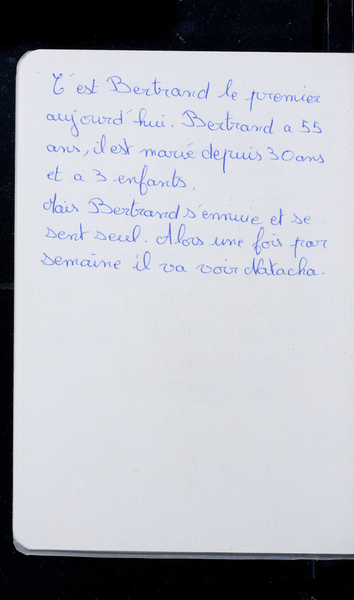 C'est Bertrand le premier
aujourd'hui. Bertrand a 55
ans, il est marié depuis 30 ans
et a 3 enfants.
Mais Bertrand s'ennuie et se
sent seul. Alors une fois par
semaine il va voir Natacha.